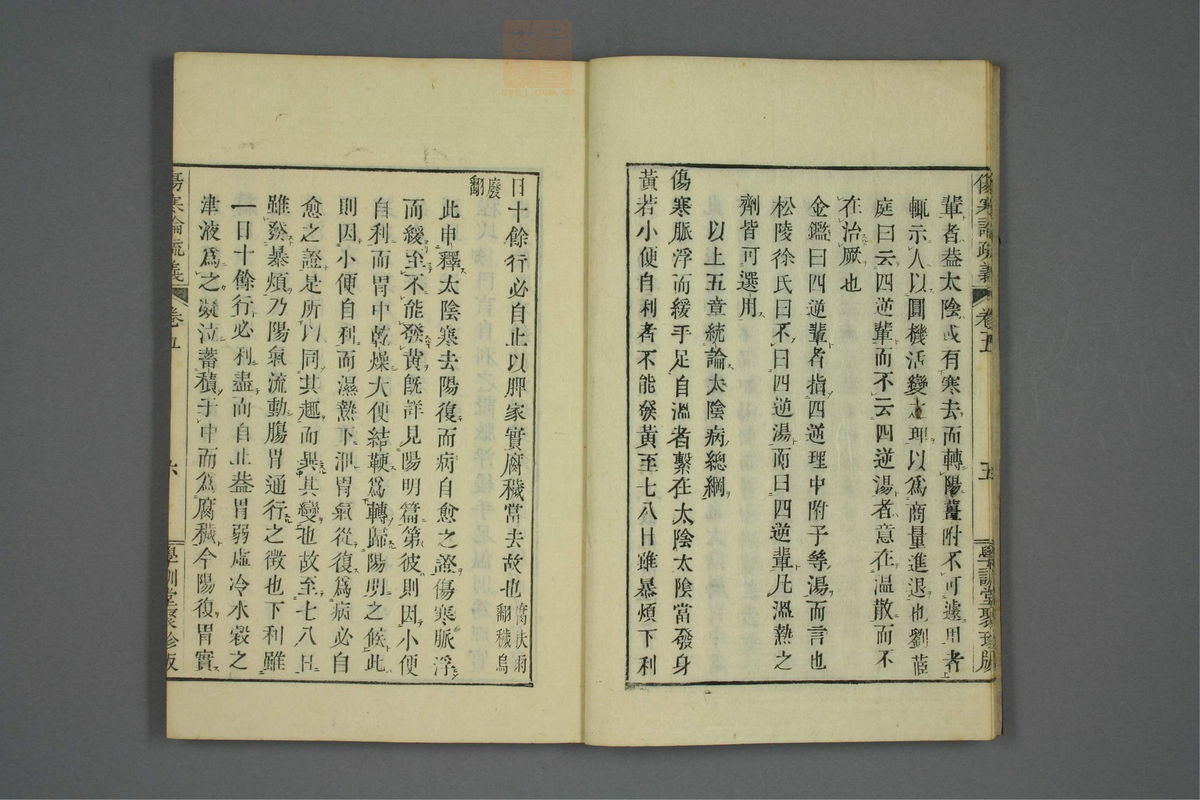 傷寒論疏義 卷五 五 學訓堂聚珍版
輩者葢太陰或有寒去而轉陽薑附不可遽用者
輒示人以圓機活變之理以爲商量進退也劉蓝
庭曰云四逆輩而不云四逆湯者意在溫散而不
在治厥也
金鑑曰四逆輩者指四逆理中附子等湯而言也
松陵徐氏曰不曰四逆湯而曰四逆輩凡溫熱之
劑皆可選用
以上五章統論太陰病總綱
傷寒脈浮而緩手足自溫者繫在太陰太陰當發身
黃若小便自利者不能發黃至七八日雖暴煩下利
日十餘行必自止以脾家實腐穢當去故也腐扶雨翻穢烏
廢翻
此申釋太陰寒去陽復而病自愈之證傷寒脈浮
而緩至不能發黃旣詳見陽明篇第彼則因小便
自利而胃中乾燥大便結鞕爲轉歸陽明之候此
則因小便自利而濕熱下泄胃氣從復爲病必自
愈之證是所以同其趣而異其變也故至七八日
雖發暴煩乃陽氣流動腸胃通行之徵也下利雖
一日十餘行必利盡而自止葢胃弱虛冷水穀之
津液爲之凝泣蓄積于中而爲腐穢今陽復胃實
傷寒論疏義 卷五 六 學訓堂聚珍版